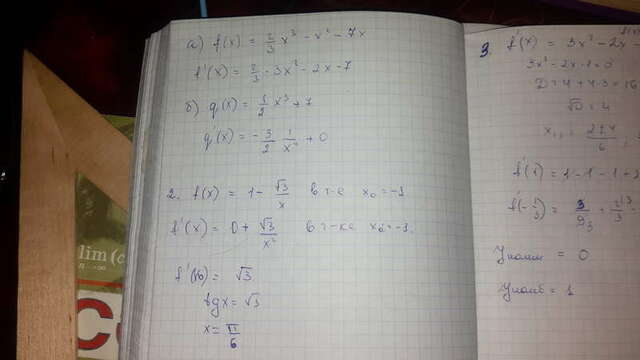 а) f(x) = 2/3 x³ - x² - 7x
f'(x) = 2/3 · 3x² - 2x - 7
б) g(x) = 1/2 x³ + 7
g'(x) = - 3/2 1/x⁴ + 0
2. f(x) = 1 - √3/x в т-е x₀ = -1
f'(x) = 0 + √3/x² в т-ке x₀ = -1
f'(x₀) = √3
tgx = √3
x = π/6
3. f'(x) = 3x² - 2x
3x² - 2x - 1 = 0
D = 4 + 4·3 = 16
√D = 4
6
f'(x) = 1 - 1 - 1 +
= 0
= 1
lim (